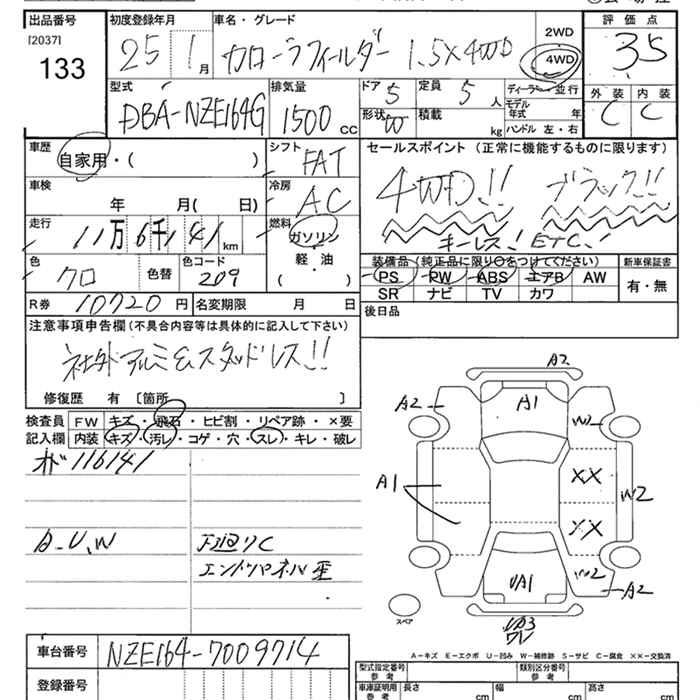 出品番号 初度登録年月 車名・グレード 評価点
[2037] 133
25 1月 カローラフィールダー 1.5X 4WD 2WD 4WD 3.5
型式 排気量 ドア 定員 ディーラー 並行 外装 内装
DBA-NZE164G 1500 cc 5 5人 モデル年式 年 C C
形状 W 積載 kg ハンドル 左・右
車歴 シフト セールスポイント (正常に機能するものに限ります)
自家用・( ) FAT 4WD!! ブラック!!
車検 冷房
年 月( 日) AC
走行 燃料 キーレス! ETC!
11万6千141km ガソリン 軽・油 ( )
色 色替 色コード 装備品 (純正品に限り〇をつけてください) 新車保証書
クロ 209 PS PW ABS エアB AW 有・無
SR ナビ TV カワ
R券 10720円 名変期限 月 日 後日品
注意事項申告欄 (不具合内容等は具体的に記入して下さい)
社外アルミ&スタッドレス!!
修復歴 有 〔箇所 〕
検査員 FW キズ・飛石・ヒビ割・リペア跡・×要
記入欄 内装 キズ・汚レ・コゲ・穴・スレ・キレ・破レ
116141
A-U,W 下廻りC
エンドパネル歪
A2
A2 A1 W2
A1 XX W2
XX
W2
UA1 A2
UA3
W
スペア
A-キズ E-エクボ U-凹み W-補修跡 S-サビ C-腐食 ××-交換済
車台番号 NZE164-7009714
登録番号
型式指定番号 参考 類別区分番号 参考
車庫証明用 参考 長さ cm 幅 cm 高さ cm